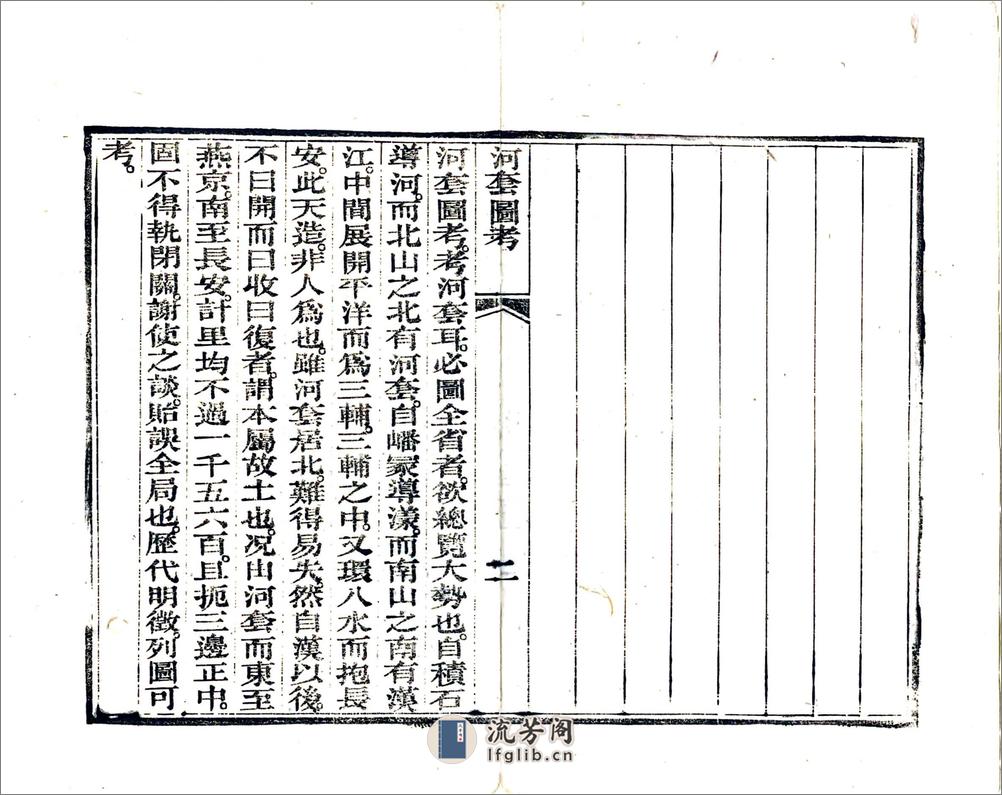 河套圖考
二
河套圖考。考河套耳。必圖全省者。欲總覽大勢也。自積石
導河。而北山之北有河套。自嶓冢導漾。而南山之南有漢
江。中間展開平洋而爲三輔。三輔之中。又環八水而抱長
安。此天造。非人爲也。雖河套居北。難得易失。然自漢以後。
不曰開而曰收曰復者。謂本屬故土也。况由河套而東至
燕京。南至長安。計里均不過一千五六百。且扼三邊正中。
固不得執閉關。謝使之談。貽誤全局也。歷代明徵。列圖可
考。
流芳阁
lfglib.cn